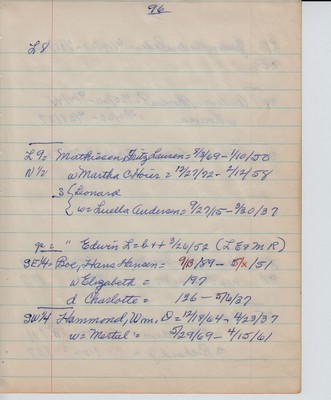 96
L8
L9= Mathiesen, Fritz Laurence= 8/3/69-1/10/50
N 1/2 w Martha C Hoier = 12/27/72- 2/12/58
s { Leonard
w= Luella Anderson= 9/27/15-3/20/37
" Edwin L= b++ 3/26/52 (L E 9 M R)
SE/4= Boe, Hans Hansen= 9/13/89-5/x/51
w Elizabeth = 197
d Charlotte = 136 - 5/6/37
SW/4 Hammond, Wm. O= 12/19/64, 4/23/37
w= Mertel = 5/29/69- 4/15/61